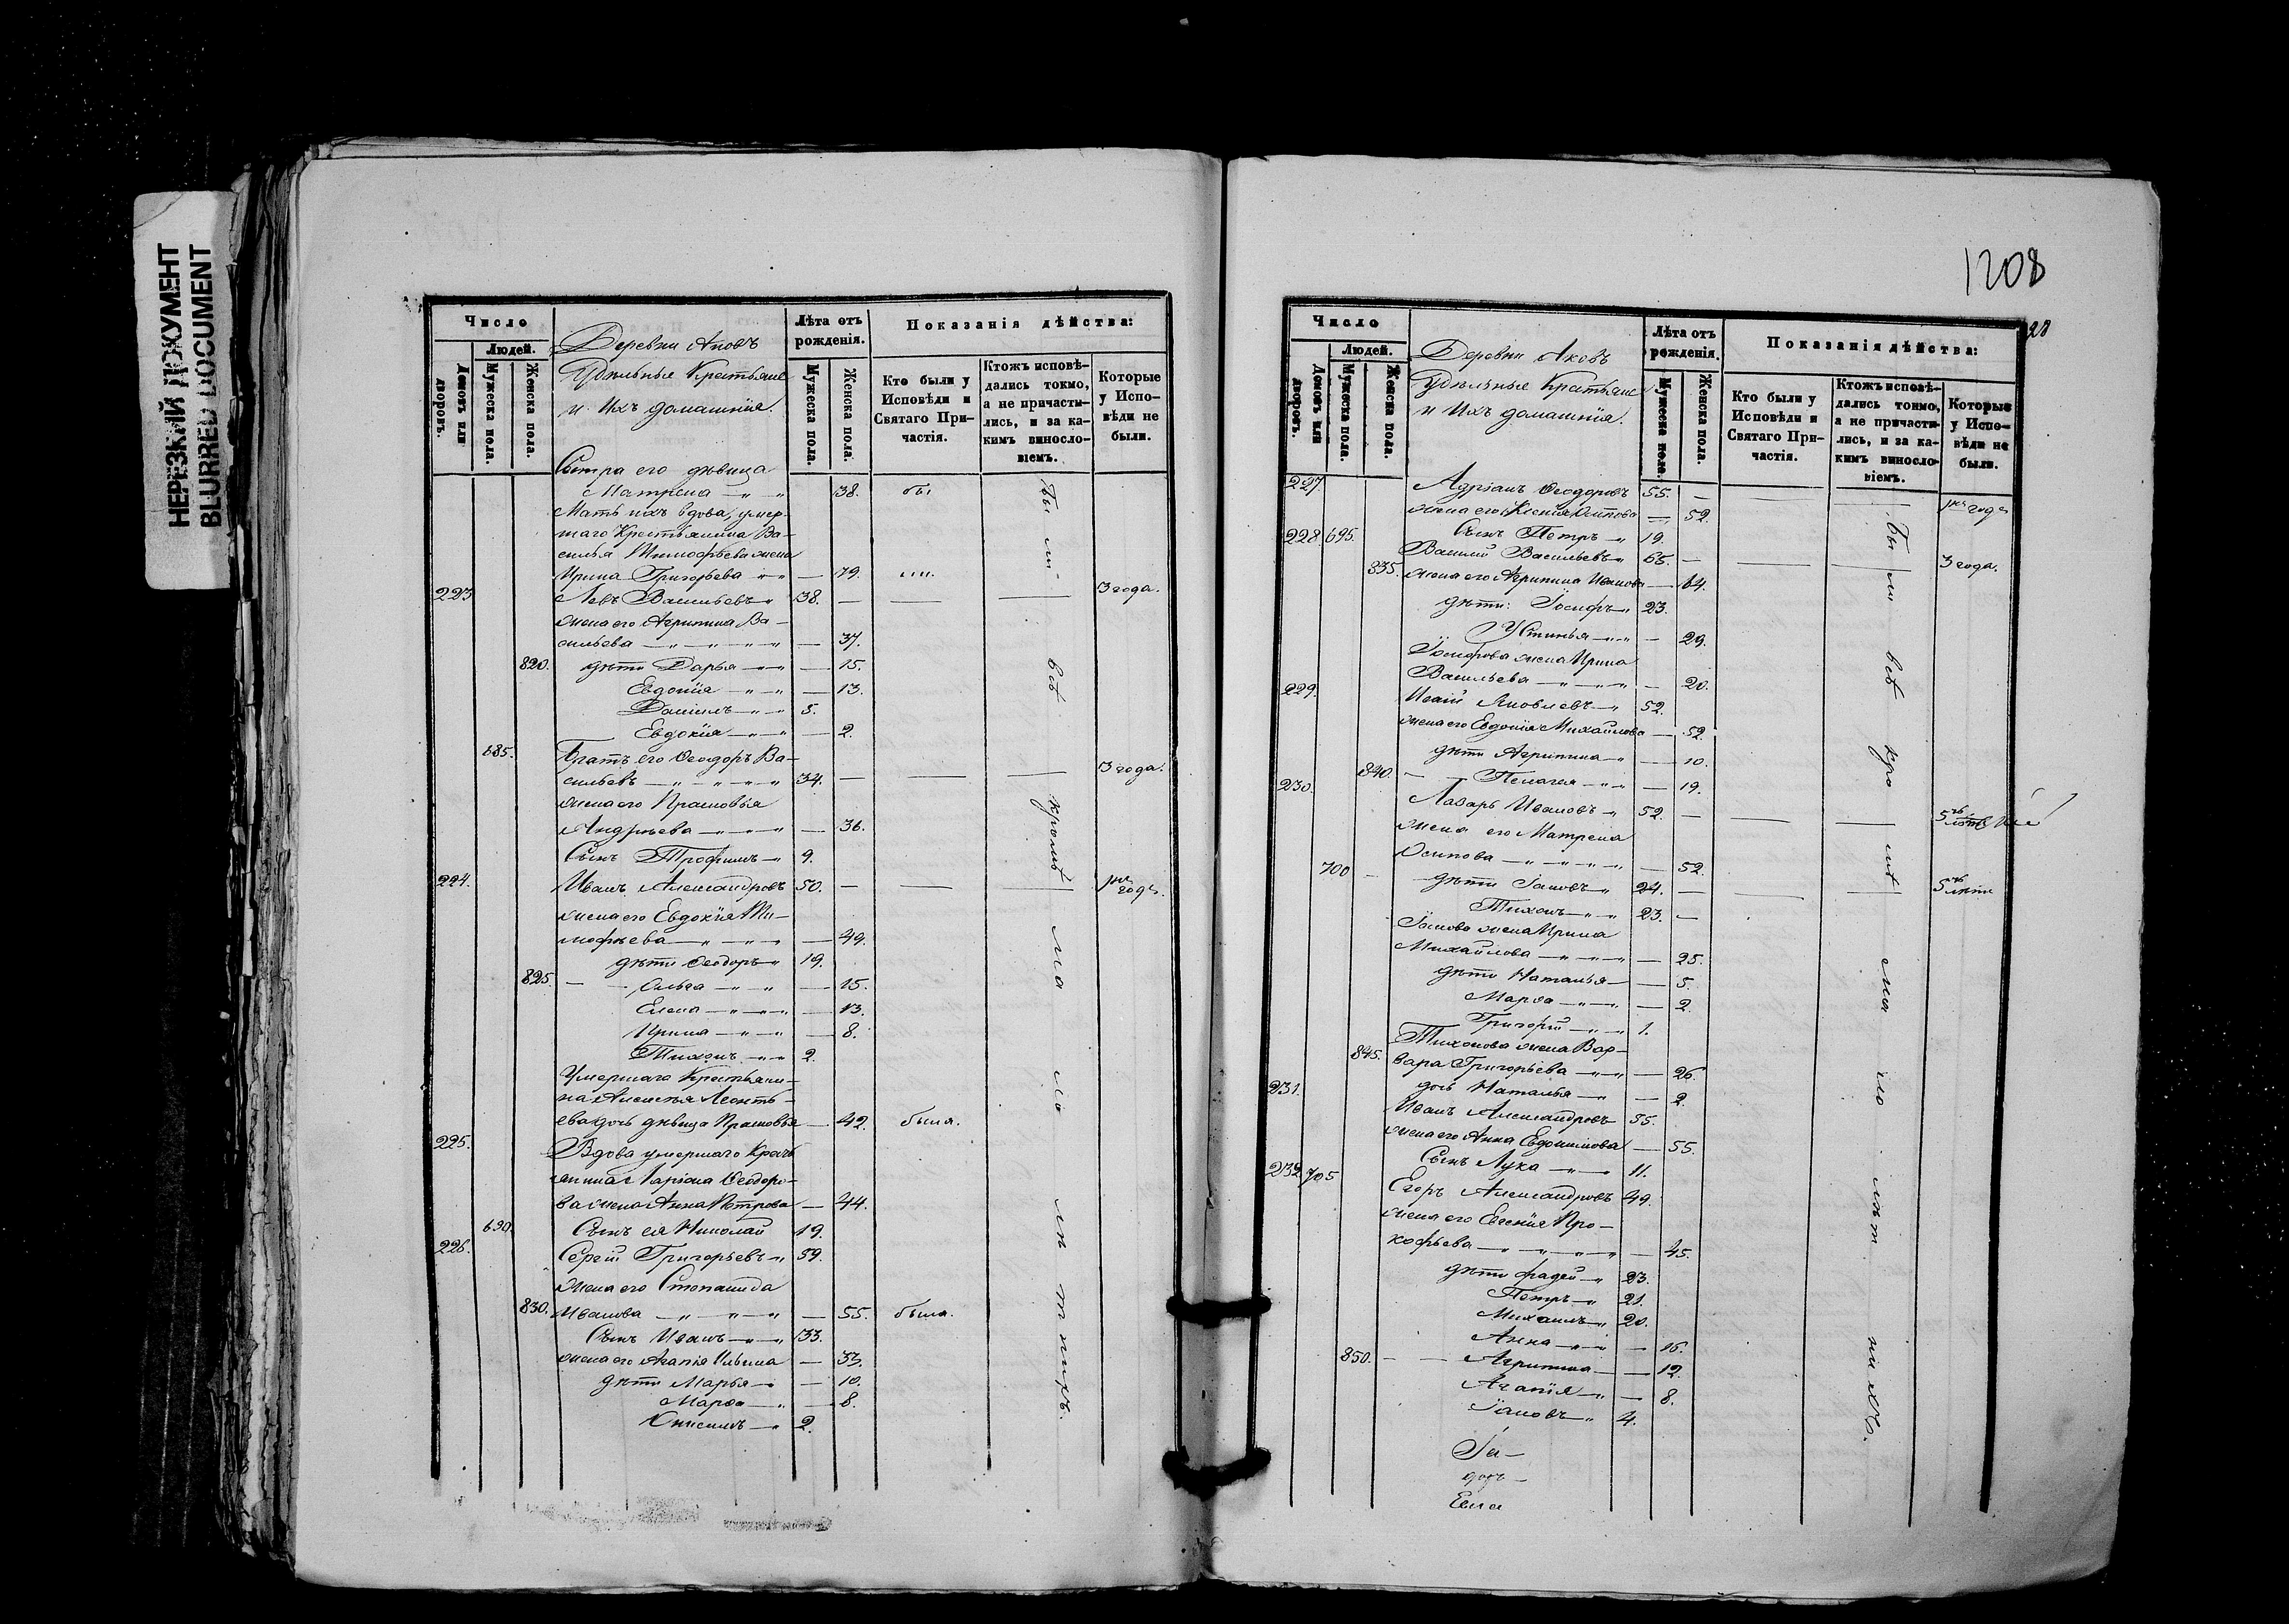 НЕРЕЗКИЙ ДОКУМЕНТ
BLURRED DOCUMENT
Число
Людей.
Домовъ или дворовъ.
Мужеска пола.
Женска пола.
Деревни Аковъ
Удѣльные Крестьяне
и Ихъ домашнія.
Лѣта отъ рожденія.
Мужеска пола.
Женска пола.
Показанія дѣйства:
Кто были у Исповѣди и Святаго Причастія.
Ктожъ исповѣдались токмо, а не причастились, и за какимъ винословіемъ.
Которые у Исповѣди не были.
Сестра его дѣвица
Матрена 38. бы
Мать ихъ вдова, умер-
шаго Крестьянина Ва-
силья Тимофѣева жена
Ирина Григорьева — 79.
223 Левъ Васильевъ 38. — — — 3 года.
жена его Агрипина Ва-
сильева — 37.
820. дѣти Дарья — 15.
Евдокія — 13.
Даніилъ 5.
Евдокія — 2.
685. Братъ его Ѳеодоръ Ва-
сильевъ 34. — — — 3 года.
жена его Прасковья
Андреева — 36.
Сынъ Трофимъ 9.
224. Иванъ Александровъ 50. — — — года.
жена его Евдокія Ти-
мофеева — 49.
дѣти Ѳеодоръ 19.
825. — Ольга — 15.
Елена — 13.
Ирина — 8.
Тихонъ 2.
Умершаго Крестьяни-
на Алексея Леонть-
ева дочь дѣвица Прасковья — 42. была.
225. Вдова умершаго Кресть
янина Ларіона Ѳеодоро-
ва жена Анна Петрова — 44.
690. Сынъ ея Николай 19.
226. Сергей Григорьевъ 59.
жена его Степанида
830. Иванова — 55. была.
Сынъ Иванъ 33.
жена его Агапія Ильина — 33.
дѣти Марья — 10.
Марѳа — 8.
Онисимъ 2.
всѣ
кромѣ
1208
Число
Людей.
Домовъ или дворовъ.
Мужеска пола.
Женска пола.
Деревни Аковъ
Удѣльные Крестьяне
и Ихъ домашнія.
Лѣта отъ рожденія.
Мужеска пола.
Женска пола.
Показанія дѣйства:
Кто были у Исповѣди и Святаго Причастія.
Ктожъ исповѣдались токмо, а не причастились, и за какимъ винословіемъ.
Которые у Исповѣди не были.
227. Адріанъ Ѳеодоровъ 55. — — — года
жена его Ксенія Осипова — 52.
228. 695. Сынъ Петръ 19.
Василій Васильевъ 65. — — — 3 года.
835. жена его Агрипина Иванова — 64.
дѣти: Іосифъ 23.
Устинья — 29.
Іосифова жена Ирина
Васильева — 20.
229. Исай Яковлевъ 52.
жена его Евдокія Михайлова — 52.
дѣти Агрипина — 10.
840. — Пелагея — 19.
230. Лазарь Ивановъ 52. — — —
жена его Матрена
Осипова — 52.
700 — дѣти Іаковъ 24. — — —
Тихонъ 23. —
Іакова жена Ирина
Михайлова — 25.
дѣти Наталья — 5.
Марѳа — 2.
Григорій 1.
Тихонова жена Вар-
845. вара Григорьева — 26.
дочь Наталья — 2.
231. Иванъ Александровъ 55.
жена его Анна Евдокимова — 55.
Сынъ Лука 11.
232 705 Егоръ Александровъ 49.
жена его Евгенія Про-
кофьева — 45.
дѣти Фадей 23.
Петръ 21.
Михаилъ 20.
Анна — 16.
850. — — Агрипина — 12.
Агапія — 8.
Іаковъ 4.